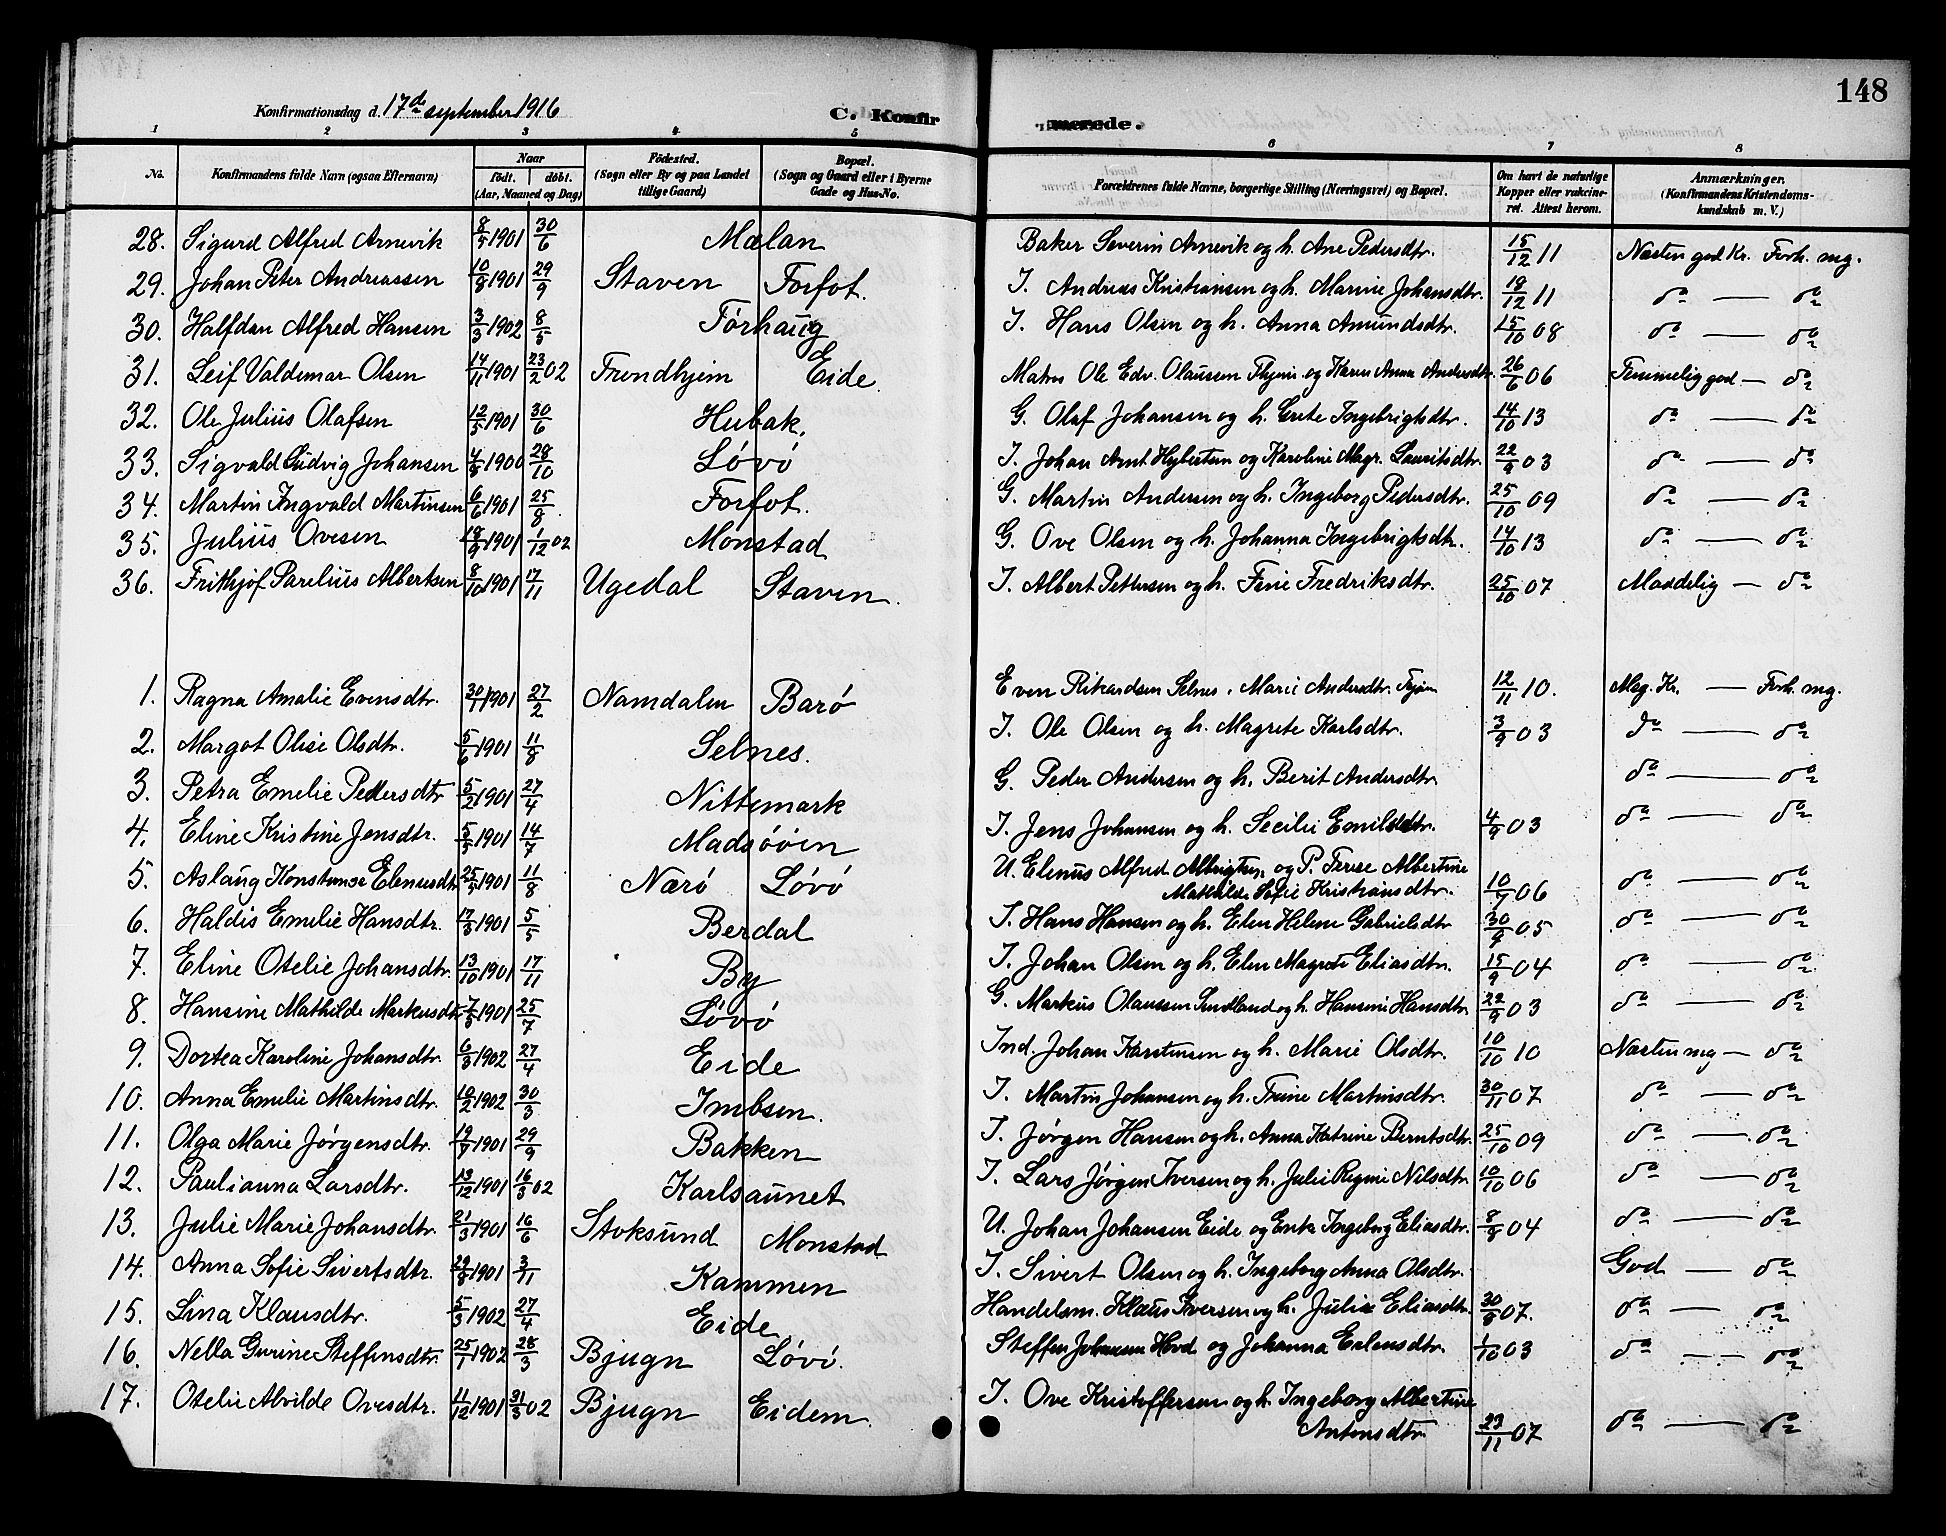 148
Konfirmationsdag d. 17de september 1916 C. Konfirmerede.
1 2 3 4 5 6 7 8
No. Konfirmandens fulde Navn (ogsaa Efternavn) Naar födt. döbt. (Aar, Maaned og Dag) Födested. (Sogn eller By og paa Landet tillige Gaard) Bopæl. (Sogn og Gaard eller i Byerne Gade og Hus-No. Forældrenes fulde Navne, borgerlige Stilling (Næringsvei) og Bopæl. Om havt de naturlige Kopper eller vakcineret. Attest herom. Anmærkninger. (Konfirmandens Kristendomskundskab m. V.)
28. Sigurd Alfred Arnevik 8/5 1901 30/6 Mælan Baker Severin Arnevik og h. Ane Pedersdtr. 15/12 11 Næsten god Kr. Forh. mg.
29. Johan Peter Andreassen 10/8 1901 29/9 Staven Forfot. I. Andreas Kristiansen og h. Marine Johansdtr. 18/12 11 do — do
30. Halfdan Alfred Hansen 3/3 1902 8/5 Førhaug I. Hans Olsen og h. Anna Amundsdtr. 15/10 08 do — do
31. Leif Valdemar Olsen 14/11 1901 23/2 02 Trondhjem Eide. Matros Ole Edv. Olaussen Thjem. og Karen Anna Andersdtr. 26/6 06 Temmelig god — do
32. Ole Julius Olafsen 12/5 1901 30/6 Hubak. G. Olaf Johansen og h. Grete Ingebrigtsdtr. 14/10 13 do — do
33. Sigvald Ludvig Johansen 4/9 1900 28/10 Løvø I. Johan Arnt Hybertsen og Karoline Magr. Lauritsdtr. 22/9 03 do — do
34. Martin Ingvald Martinsen 6/6 1901 25/8 Forfot. G. Martin Andersen og h. Ingeborg Pedersdtr. 25/10 09 do — do
35. Julius Ovesen 18/9 1901 1/12 02 Monstad G. Ove Olsen og h. Johanna Ingebrigtsdtr. 14/10 13 do — do
36. Frithjof Parelius Albertsen 8/10 1901 17/11 Ugedal Staven. I. Albert Pettersen og h. Fine Fredriksdtr. 25/10 07 Maadelig — do
1. Ragna Amalie Evensdtr. 30/1 1901 27/2 Namdalen Barø Even Rikardsen Selnes, Marie Andersdtr. 12/11 10. Meg. Kr. — Forh. mg.
2. Margot Olise Olsdtr. 5/6 1901 11/8 Selnes. I. Ole Olsen og h. Magrete Karlsdtr. 3/9 03 do — do
3. Petra Emelie Pedersdtr 5/2 1901 27/4 Nittemark G. Peder Andersen og h. Berit Andersdtr. do — do
4. Eline Kristine Jensdtr. 5/5 1901 14/7 Madsøien I. Jens Johansen og h. Secilie Emilsdtr. 4/9 03 do — do
5. Aslaug Konstanse Elenusdtr 25/5 1901 11/8 Nærø Løvø U. Elenus Alfred Albrigtsen og P. Terese Albertine
Mathilde Sofie Kristiansdtr. 10/7 06 do — do
6. Haldis Emelie Hansdtr. 17/3 1901 5/5 Berdal I. Hans Hansen og h. Elen Helene Gabrielsdtr 30/9 05 do — do
7. Eline Otelie Johansdtr. 13/10 1901 17/11 By I. Johan Olsen og h. Elen Magrete Eliasdtr. 15/9 04 do — do
8. Hansine Mathilde Markusdtr 7/5 1901 25/7 Løvø G. Markus Olaussen Sundland og h. Hansine Hansdtr 22/9 03 do — do
9. Dortea Karoline Johansdtr. 6/3 1902 27/4 Eide Ind. Johan Karstensen og h. Marie Olsdtr. 10/10 10 Næsten mg — do
10. Anna Emelie Martinsdtr. 10/2 1902 30/3 Imbsen. I. Martin Johansen og h. Trine Martinsdtr. 30/11 07 do — do
11. Olga Marie Jørgensdtr. 19/7 1901 29/9 Bakken I. Jørgen Hansen og h. Anna Katrine Berntsdtr. 25/10 09 do — do
12. Paulianna Larsdtr. 13/12 1901 16/3 02 Karlsaunet I. Lars Jørgen Iversen og h. Julie Regine Nilsdtr 10/10 06 do — do
13. Julie Marie Johansdtr. 21/3 1901 16/6 Stoksund Monstad U. Johan Johansen Eide og Enke Ingeborg Eliasdtr. 8/8 04 do — do
14. Anna Sofie Sivertsdtr. 29/8 1901 3/11 Kammen I. Sivert Olsen og h. Ingeborg Anna Olsdtr. God — do
15. Lina Klausdtr. 5/3 1902 27/4 Eide Handelsm. Klaus Iversen og h. Julie Eliasdtr. 30/8 07. do — do
16. Nella Gurine Steffensdtr. 25/1 1902 28/3 Bjugn Løvø. Steffen Johansen Hovd og Johanna Erlensdtr. 1/10 03 do — do
17. Otelie Alvilde Ovesdtr. 11/12 1901 31/3 02 Bjugn Eidem. I. Ove Kristoffersen og h. Ingeborg Albertine
Antonsdtr. 23/11 07 do — do